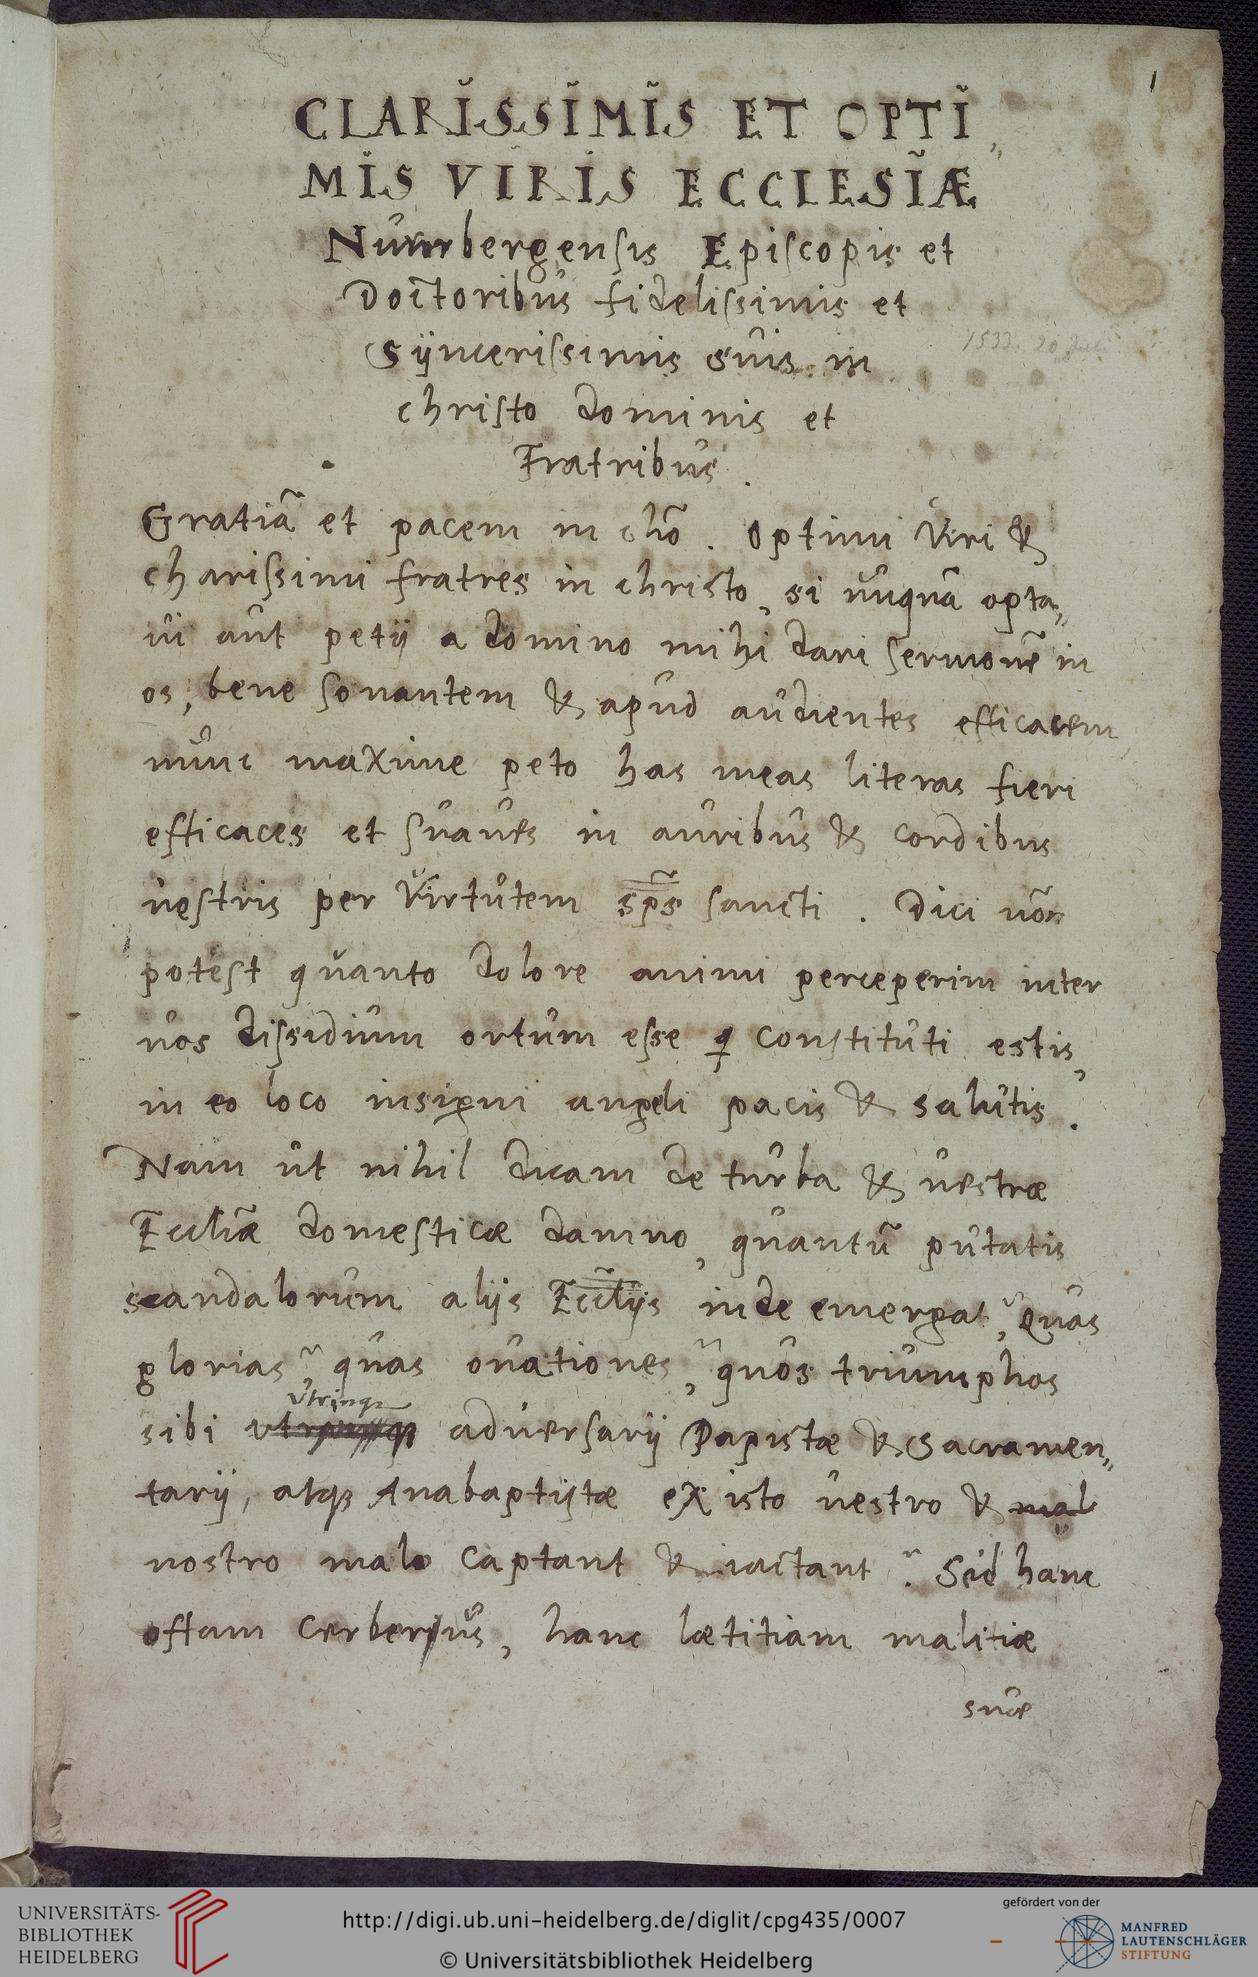 1
CLARISSIMIS ET OPTI„
MIS VIRIS ECCLESIÆ
Nurmbergensis Episcopis et
Doctoribus fidelissimis et
Syncerissimis suis in
christo dominis et
Fratribus.
1533. 20 Juli
Gratiã et pacem in chõ. Optimi Viri &
charissimi fratres in christo, si unquã opta„
ui aut petij a domino mihi dari sermonẽ in
os, bene sonantem & apud audientes efficacem
nunc maxime peto has meas literas fieri
efficaces et suaues in auribus & cordibus
uestris per Virtutem sps̃ sancti. Dici nõn
potest quanto dolore animi perceperim inter
uos dissidium ortum esse q constituti estis,
in eo loco insigni angeli pacis & salutis.
Nam ut nihil dicam de turba & uestræ
Eccliæ̃ domesticæ damno, quantũ putatis
scandalorum alijs Eccl̃ijs inde emergat, Quas
glorias, quas ouationes, quos triumphos
utrinq
sibi aduersarij Papistæ & Sacramen„
tarij, atq Anabaptistæ ex isto uestro & mal
nostro malo captant & iactant? Sed hanc
offam Cerberus, hanc lætitiam malitiæ
suæ
UNIVERSITÄTS-
BIBLIOTHEK
HEIDELBERG
http://digi.ub.uni-heidelberg.de/diglit/cpg435/0007
© Universitätsbibliothek Heidelberg
gefördert von der
MANFRED
LAUTENSCHLÄGER
STIFTUNG